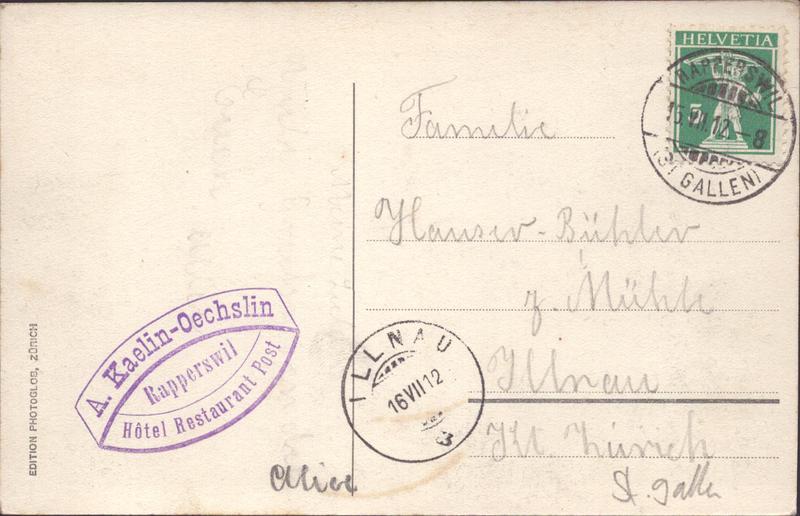 HELVETIA
5
RAPPERSWIL
15.VII.12.-8
(ST GALLEN)
Familie
Hauser-Bühler
z. Mühle
Illnau
Kt. Zürich
St. Gallen
ILLNAU
16 VII 12
3
A. Kaelin-Oechslin
Rapperswil
Hôtel Restaurant Post
Alice
EDITION PHOTOGLOB, ZÜRICH